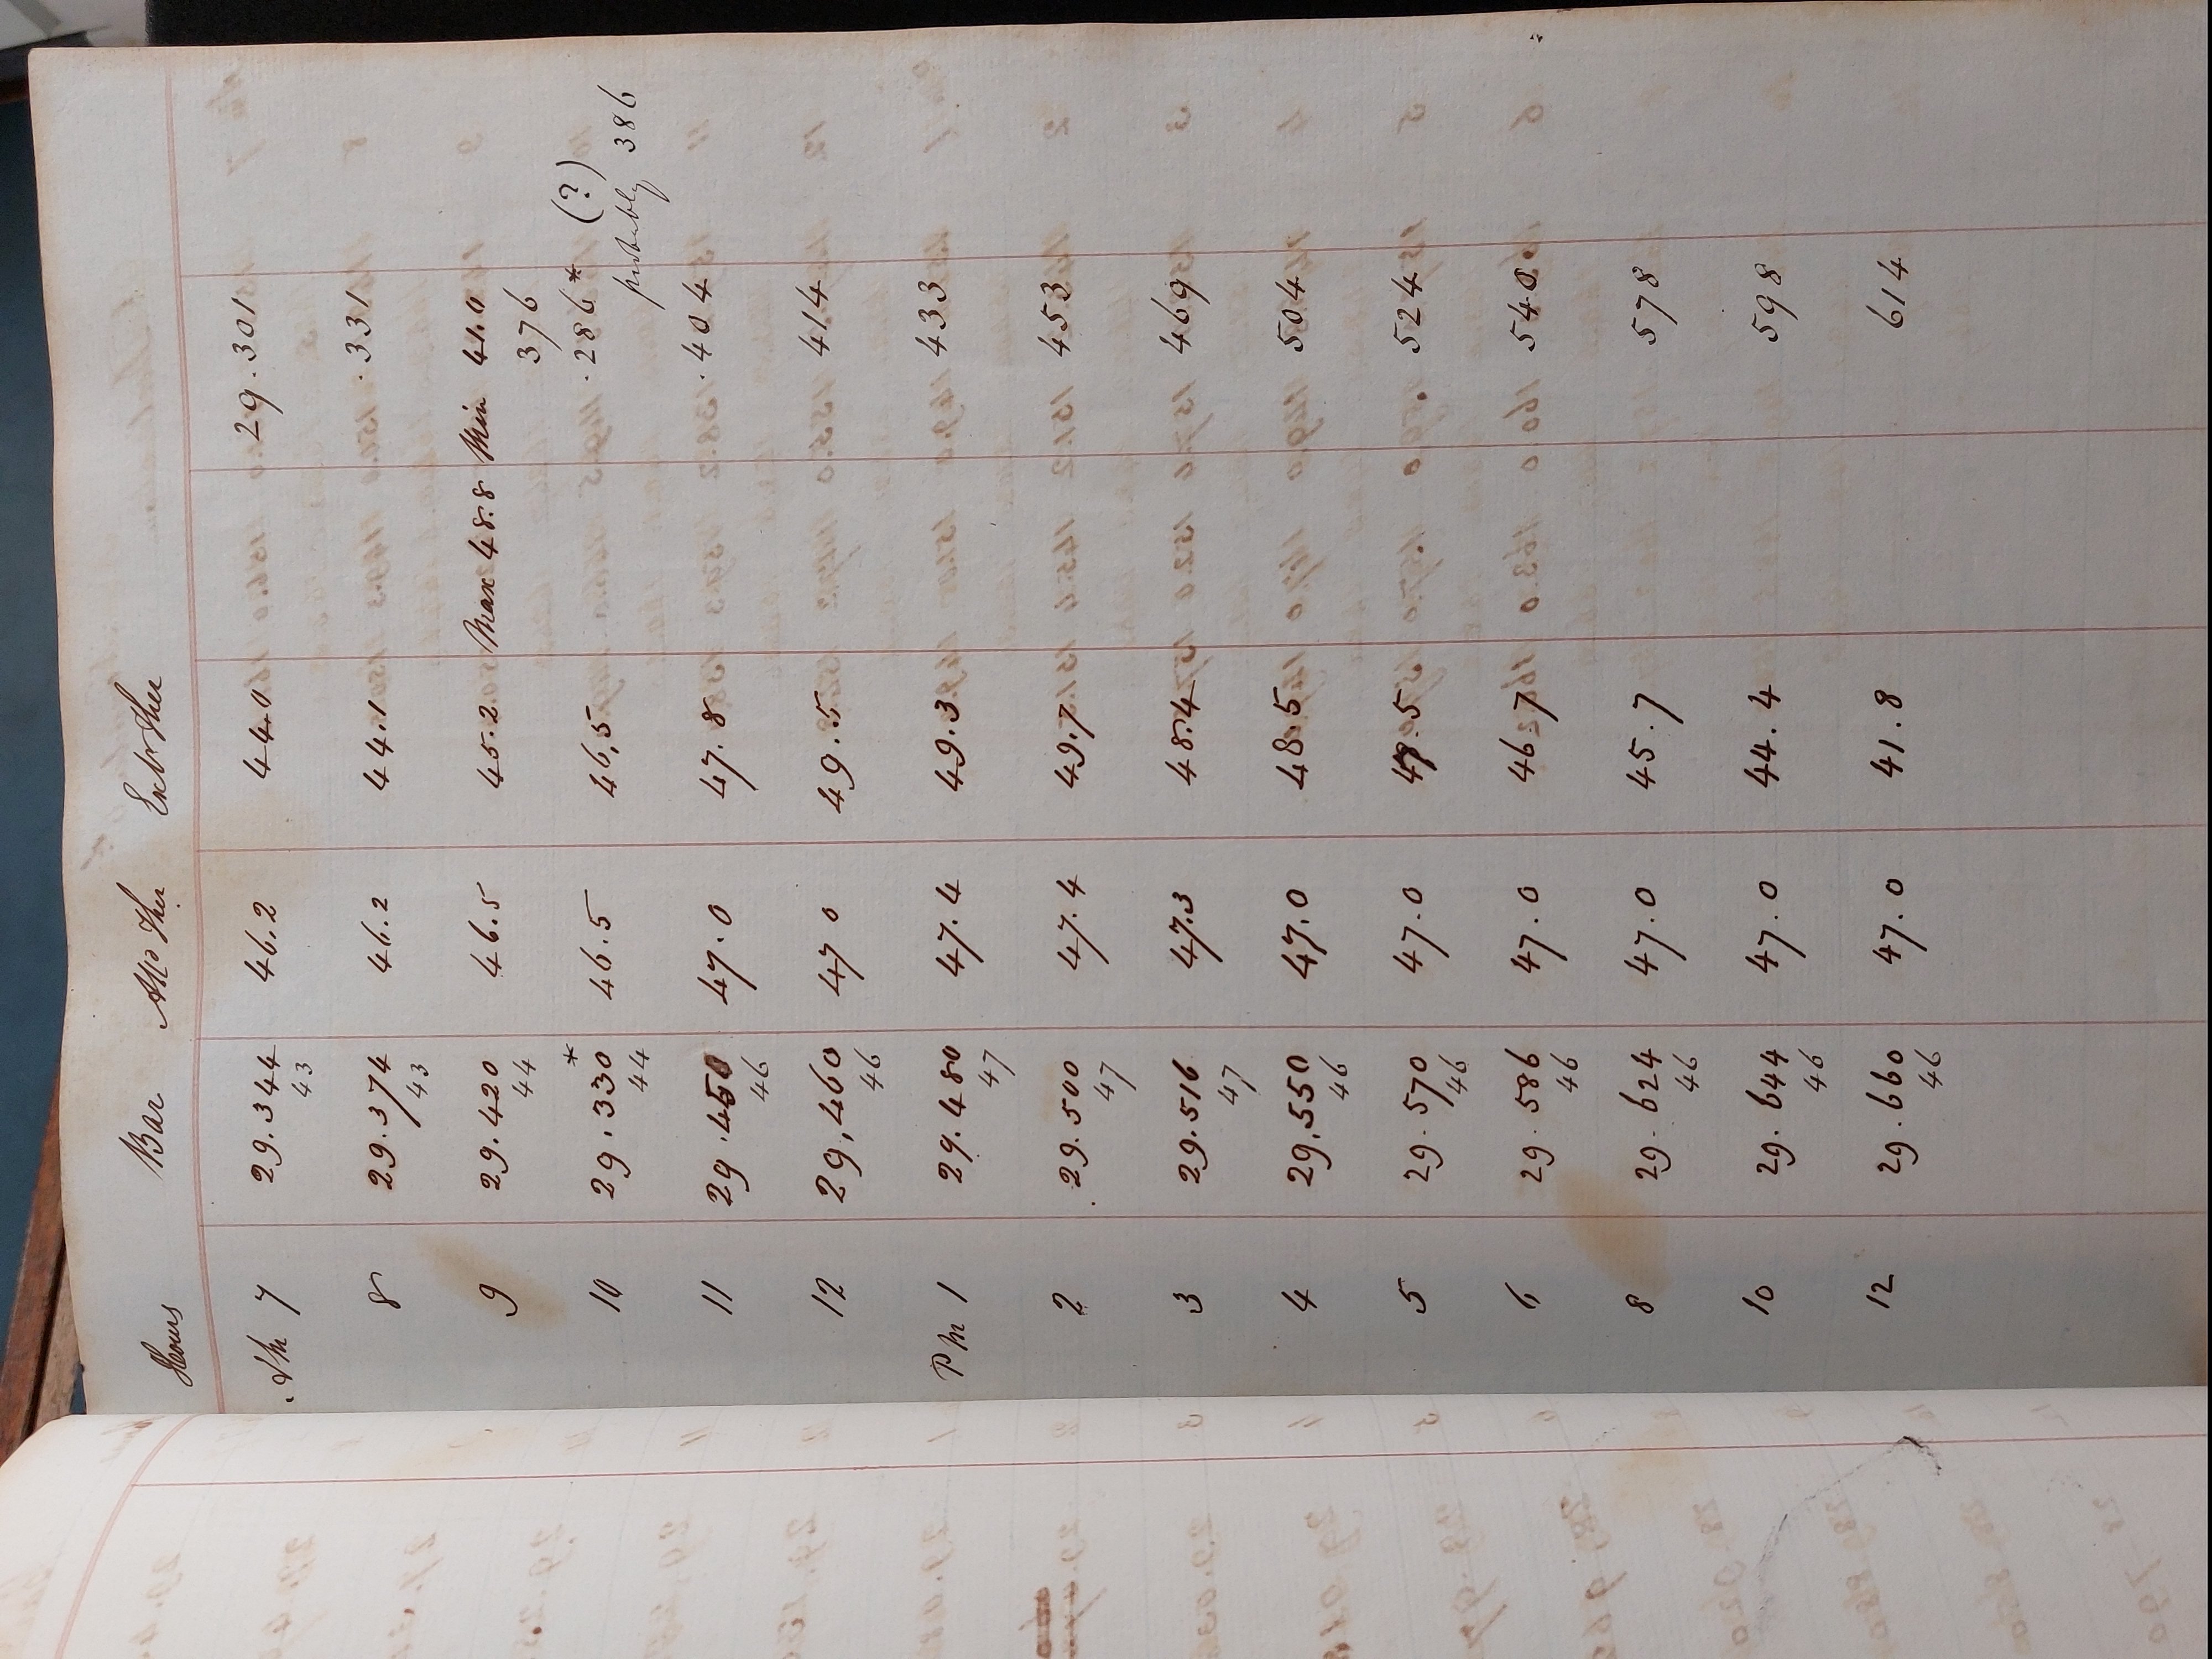 Hours Bar Attd Ther Extr Ther
Am 7 29.344 46.2 44.0 29.301
43
8 29.374 46.2 44.1 .331
43
9 29.420 46.5 45.2 Max 48.8 Min 41.0
44 376
*
10 29.330 46.5 46,5 .286* (?)
44 probably 386
11 29.450 47.0 47.8 .404
46
12 29,460 47 0 49.5 414
46
Pm 1 29.480 47.4 49.3 433
47
2 29.500 47.4 49.7 453
47
3 29.516 47.3 48.4 469
47
4 29,550 47.0 48.5 504
46
5 29.570 47.0 47.5 524
46
6 29.586 47.0 46.7 540
46
8 29.624 47.0 45.7 578
46
10 29.644 47.0 44.4 598
46
12 29.660 47.0 41.8 614
46